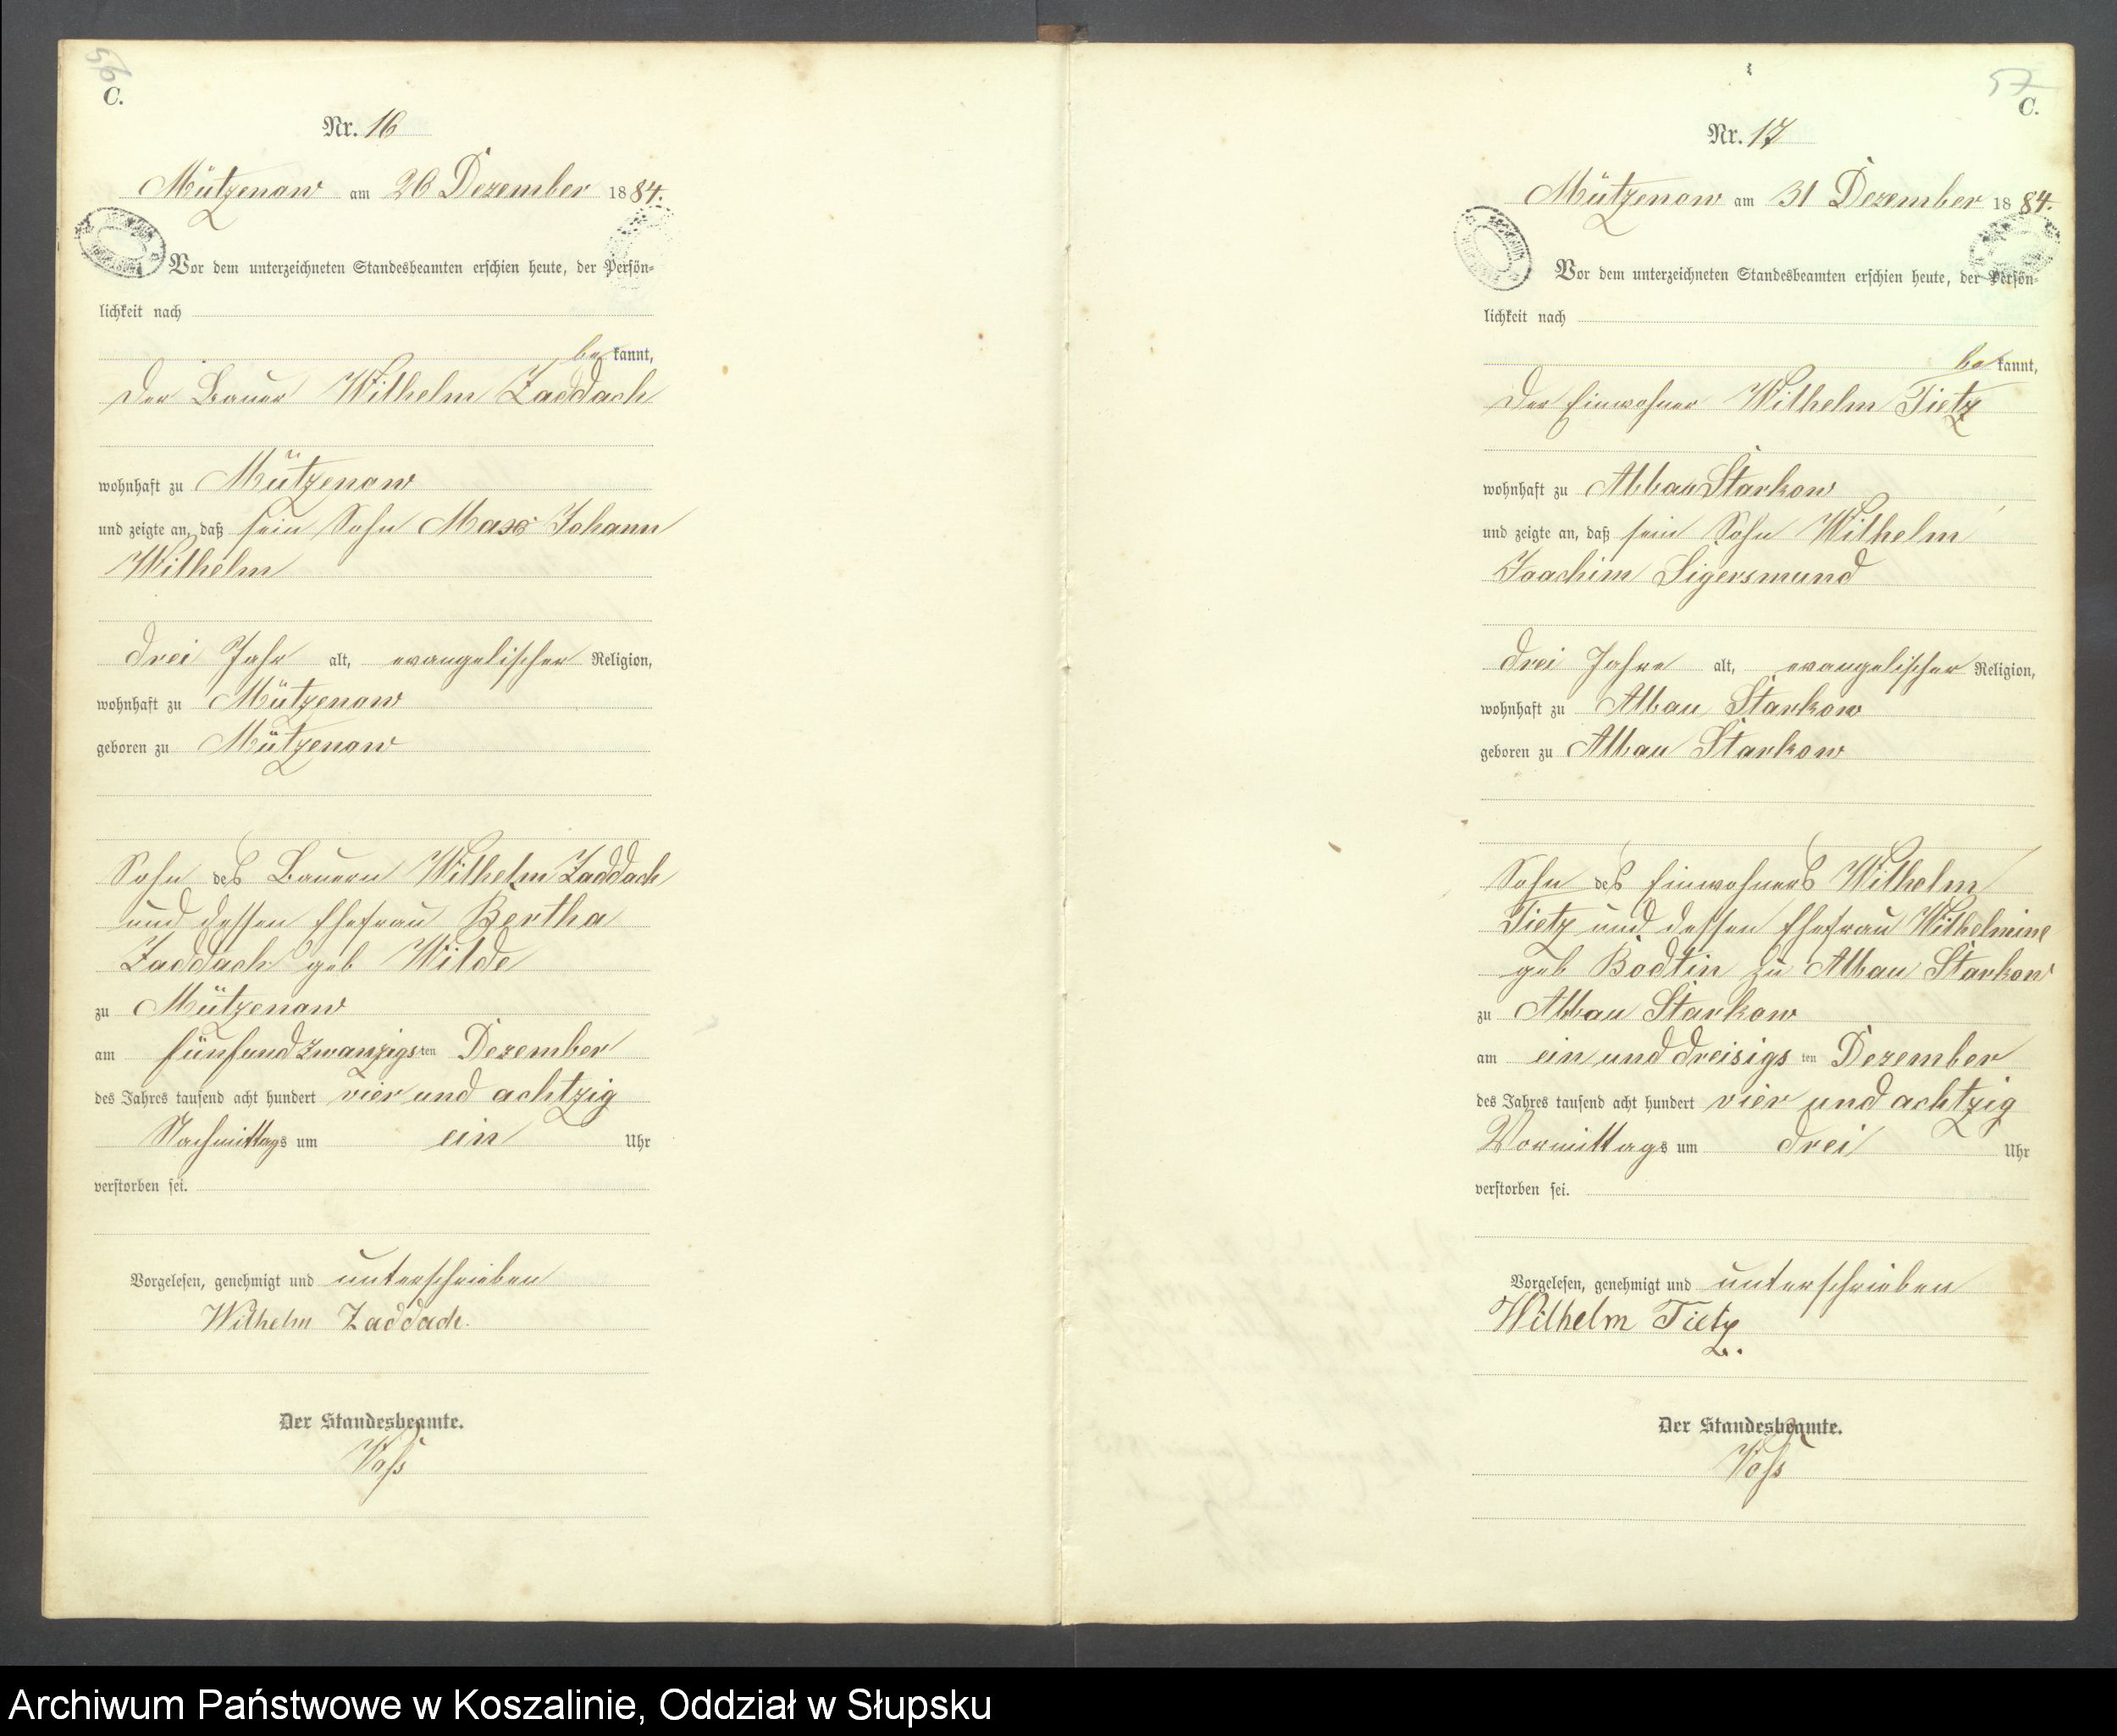 56
C.
Nr. 16
Mützenow am 26 Dezember 1884.
Vor dem unterzeichneten Standesbeamten erschien heute, der Persön-
lichkeit nach
be kannt,
der Bauer Wilhelm Zaddach
wohnhaft zu Mützenow
und zeigte an, daß sein Sohn Max Johann
Wilhelm
drei Jahr alt, evangelischer Religion,
wohnhaft zu Mützenow
geboren zu Mützenow
Sohn des Bauern Wilhelm Zaddach
und dessen Ehefrau Bertha
Zaddach geb Wilde
zu Mützenow
am fünfund zwanzigsten Dezember
des Jahres tausend acht hundert vier und achtzig
Nachmittags um ein Uhr
verstorben sei.
Vorgelesen, genehmigt und unterschrieben
Wilhelm Zaddach.
Der Standesbeamte.
Voß
57
C.
Nr. 17
Mützenow am 31 Dezember 1884.
Vor dem unterzeichneten Standesbeamten erschien heute, der Persön-
lichkeit nach
be kannt,
der Einwohner Wilhelm Tietz
wohnhaft zu Abbau Starkow
und zeigte an, daß sein Sohn Wilhelm
Joachim Sigersmund
drei Jahre alt, evangelischer Religion,
wohnhaft zu Abbau Starkow
geboren zu Abbau Starkow
Sohn des Einwohners Wilhelm
Tietz und dessen Ehefrau Wilhelmine
geb Bodtin zu Abbau Starkow
zu Abbau Starkow
am ein und dreisigsten Dezember
des Jahres tausend acht hundert vier und achtzig
Vormittags um drei Uhr
verstorben sei.
Vorgelesen, genehmigt und unterschrieben
Wilhelm Tietz.
Der Standesbeamte.
Voß
Archiwum Państwowe w Koszalinie, Oddział w Słupsku